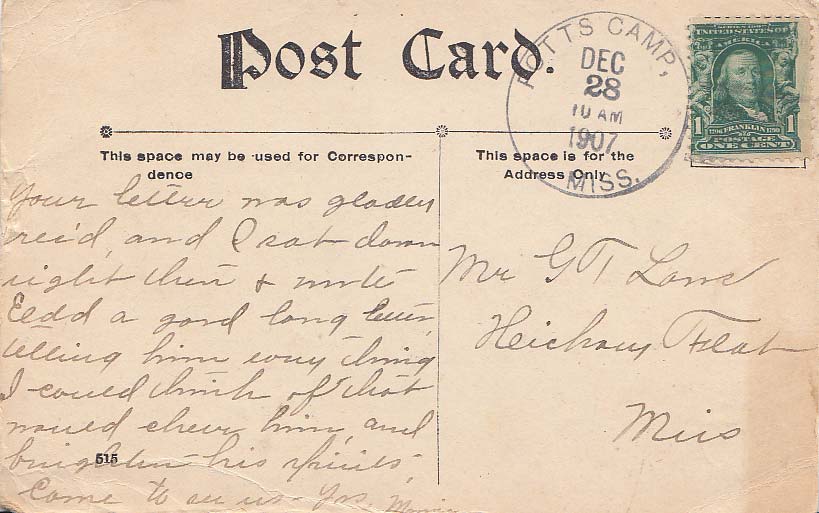 Post Card.
POTTS CAMP,
DEC
28
10 AM
1907
MISS.
SERIES 1902
UNITED STATES OF
AMERICA
1 1
1706 FRANKLIN 1790
POSTAGE
ONE CENT
This space may be used for Correspon-
dence
This space is for the
Address Only
Your letter was gladly
rec'd, and I sat down
right then & wrote
a good long letter,
telling him every thing
I could think of that
would cheer him, and
brighten his spirits,
Come to see us - Yrs.
515
Mr G T
Heickory Flat
Miss